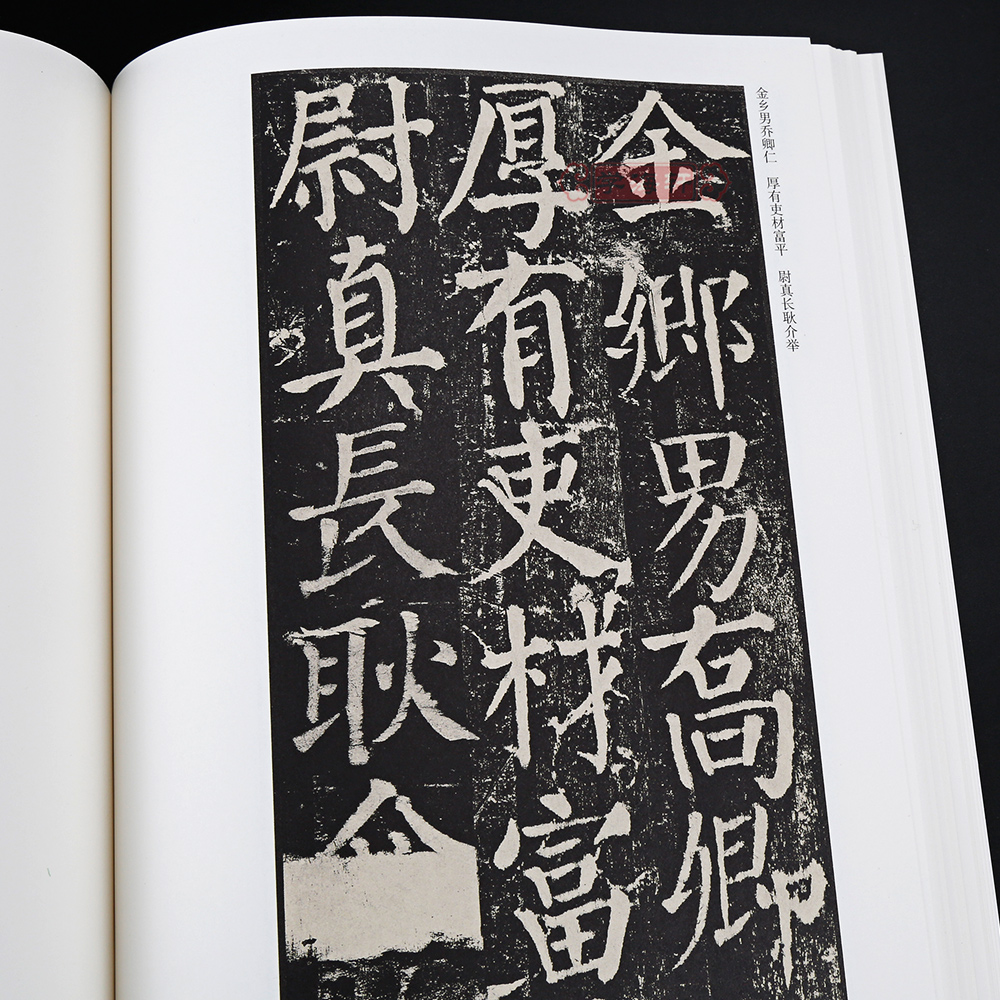 金乡男乔卿仁 厚有吏材富平 尉真长耿介举
金鄉男喬卿
厚有吏材富
尉真長耿介